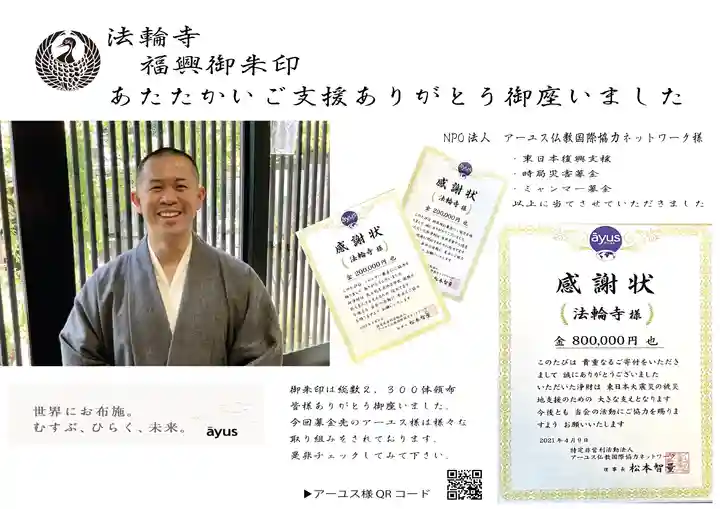 法輪寺
福興御朱印
あたたかいご支援ありがとう御座いました
NPO法人 アーユス仏教国際協力ネットワーク様
・東日本復興支援
・時局災害募金
・ミャンマー募金
以上に当てさせていただきました
āyus
感謝状
(法輪寺様)
金 200,000円 也
āyus
感謝状
(法輪寺様)
金 200,000円 也
松本智量
āyus
感謝状
(法輪寺様)
金 800,000円 也
このたびは 貴重なるご寄付をいただき
まして 誠にありがとうございました
いただいた浄財は 東日本大震災の被災
地支援のための 大きな支えとなります
今後とも 当会の活動にご協力を賜りま
すよう お願いいたします
2021年4月9日
特定非営利活動法人
アーユス仏教国際協力ネットワーク
理事長 松本智量
御朱印は総数2,300体頒布
皆様ありがとう御座いました。
今回募金先のアーユス様は様々な
取り組みをされております。
是非チェックしてみて下さい。
▶アーユス様QRコード
世界にお布施。
むすぶ、ひらく、未来。
āyus